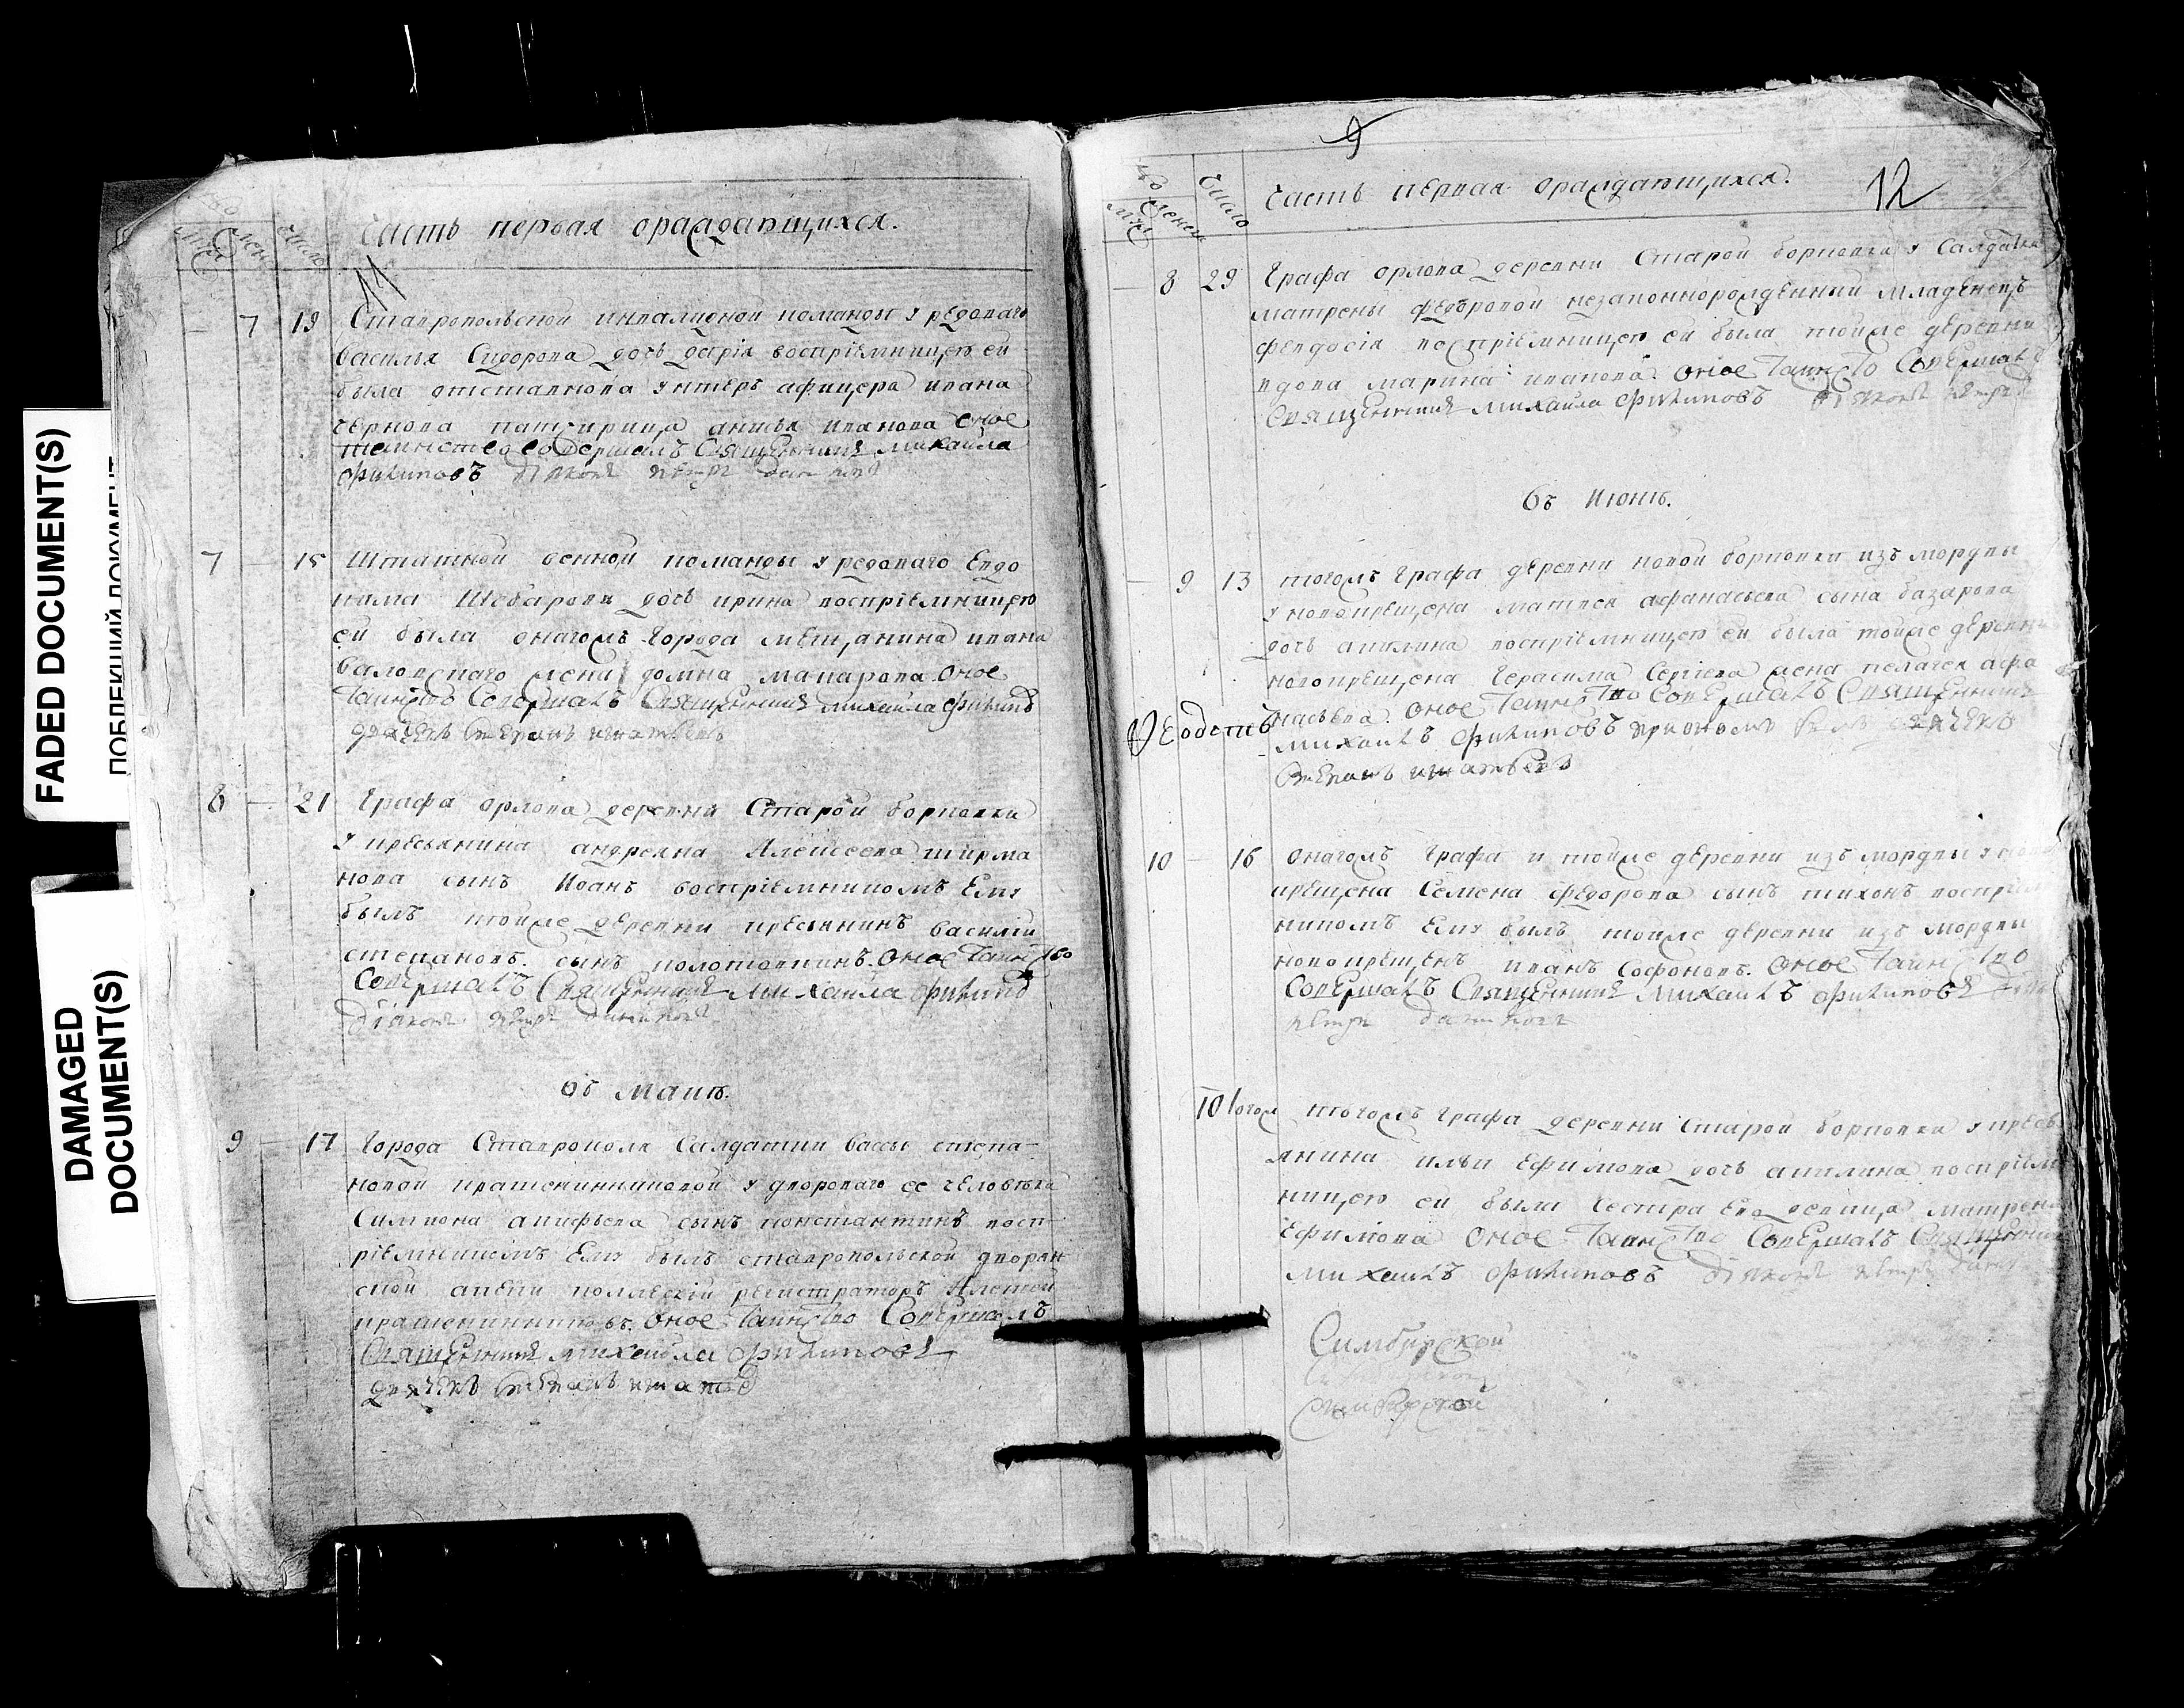 FADED DOCUMENT(S)
DAMAGED DOCUMENT(S)
Часть первая ораждающихся.
11
7 19 Ставропольской инвалидной команды у редоваго
Василья Сидорова дочь дарія восприемницею ей
была отставнова унтеръ афицера ивана
чернова анна иванова оное
таинство совершалъ Священникъ Михайла
Филиповъ діяконъ петръ
7 15 Штатной военной команды у редоваго Евдо
кима дочь ирина восприемницею
ей была онагожъ города мещанина ивана
жена домна макарова Оное
Таинство Совершалъ Священникъ Михайла Филиповъ
дьячекъ Степанъ игнатьевъ
8 21 Графа орлова деревни Старой борковки
у крестьянина андреяна Алексеева ширма
нова сынъ Иванъ восприемникомъ Ему
былъ тойже деревни крестьянинъ василій
степановъ сынъ Оное Таинство
Совершалъ Священникъ Михайла Филиповъ
діяконъ петръ
въ Маиѣ.
9 17 Города Ставрополя Салдатки вассы степа-
новой крашенинниковой у двороваго ее человѣка
Симиона сынъ константинъ восп-
риемникомъ Ему былъ ставропольской дворян
ской апеки колежскій регистраторъ Алексей
крашенинниковъ. Оное Таинство Совершалъ
Священникъ Михайла Филиповъ
дьячекъ Степанъ
9
Число
Часть первая ораждающихся.
12
8 29 Графа орлова деревни Старой борковки у Салдатки
матрены федоровой незаконнорожденный младенецъ
феодосія восприемницею ей была тойже деревни
вдова марина иванова. Оное Таинство Совершалъ
Священникъ Михайла Филиповъ діяконъ петръ
въ Июнѣ.
9 13 тогожъ Графа деревни новой борковки изъ мордвы
у новокрещена матвея афанасьева сына базарова
дочь акилина восприемницею ей была тойже деревни
новокрещена Герасима Сергеева жена пелагея афа
насьева. Оное Таинство Совершалъ Священникъ
Михаилъ Филиповъ дьячекъ
Степанъ игнатьевъ
10 16 онагожъ Графа и тойже деревни изъ мордвы у ново
крещена Семена федорова сынъ тихонъ восприем
никомъ Ему былъ тойже деревни изъ мордвы
новокрещенъ иванъ Софоновъ. Оное Таинство
Совершалъ Священникъ Михаилъ Филиповъ
петръ
10 тогожъ Графа деревни Старой борковки у кресть
янина ильи Ефимова дочь акилина восприем
ницею ей была Сестра Ево девица матрена
Ефимова Оное Таинство Совершалъ Священникъ
Михаилъ Филиповъ діяконъ петръ
Симбирской
Симбирской